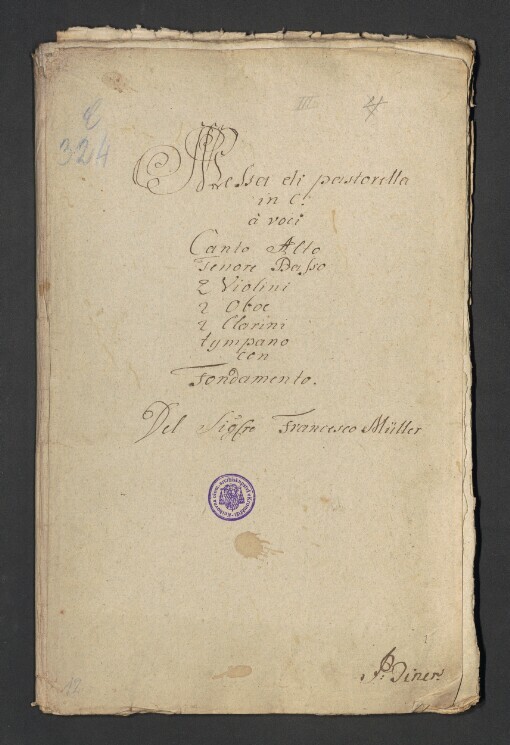 C
324
III
4
Messa di pastorella
in C.
à voci
Canto Alto
Tenore Basso
2 Violini
2 Oboe
2 Clarini
tympano
con
Fondamento.
Del Sigre Francesco Müller
P: Diner
12